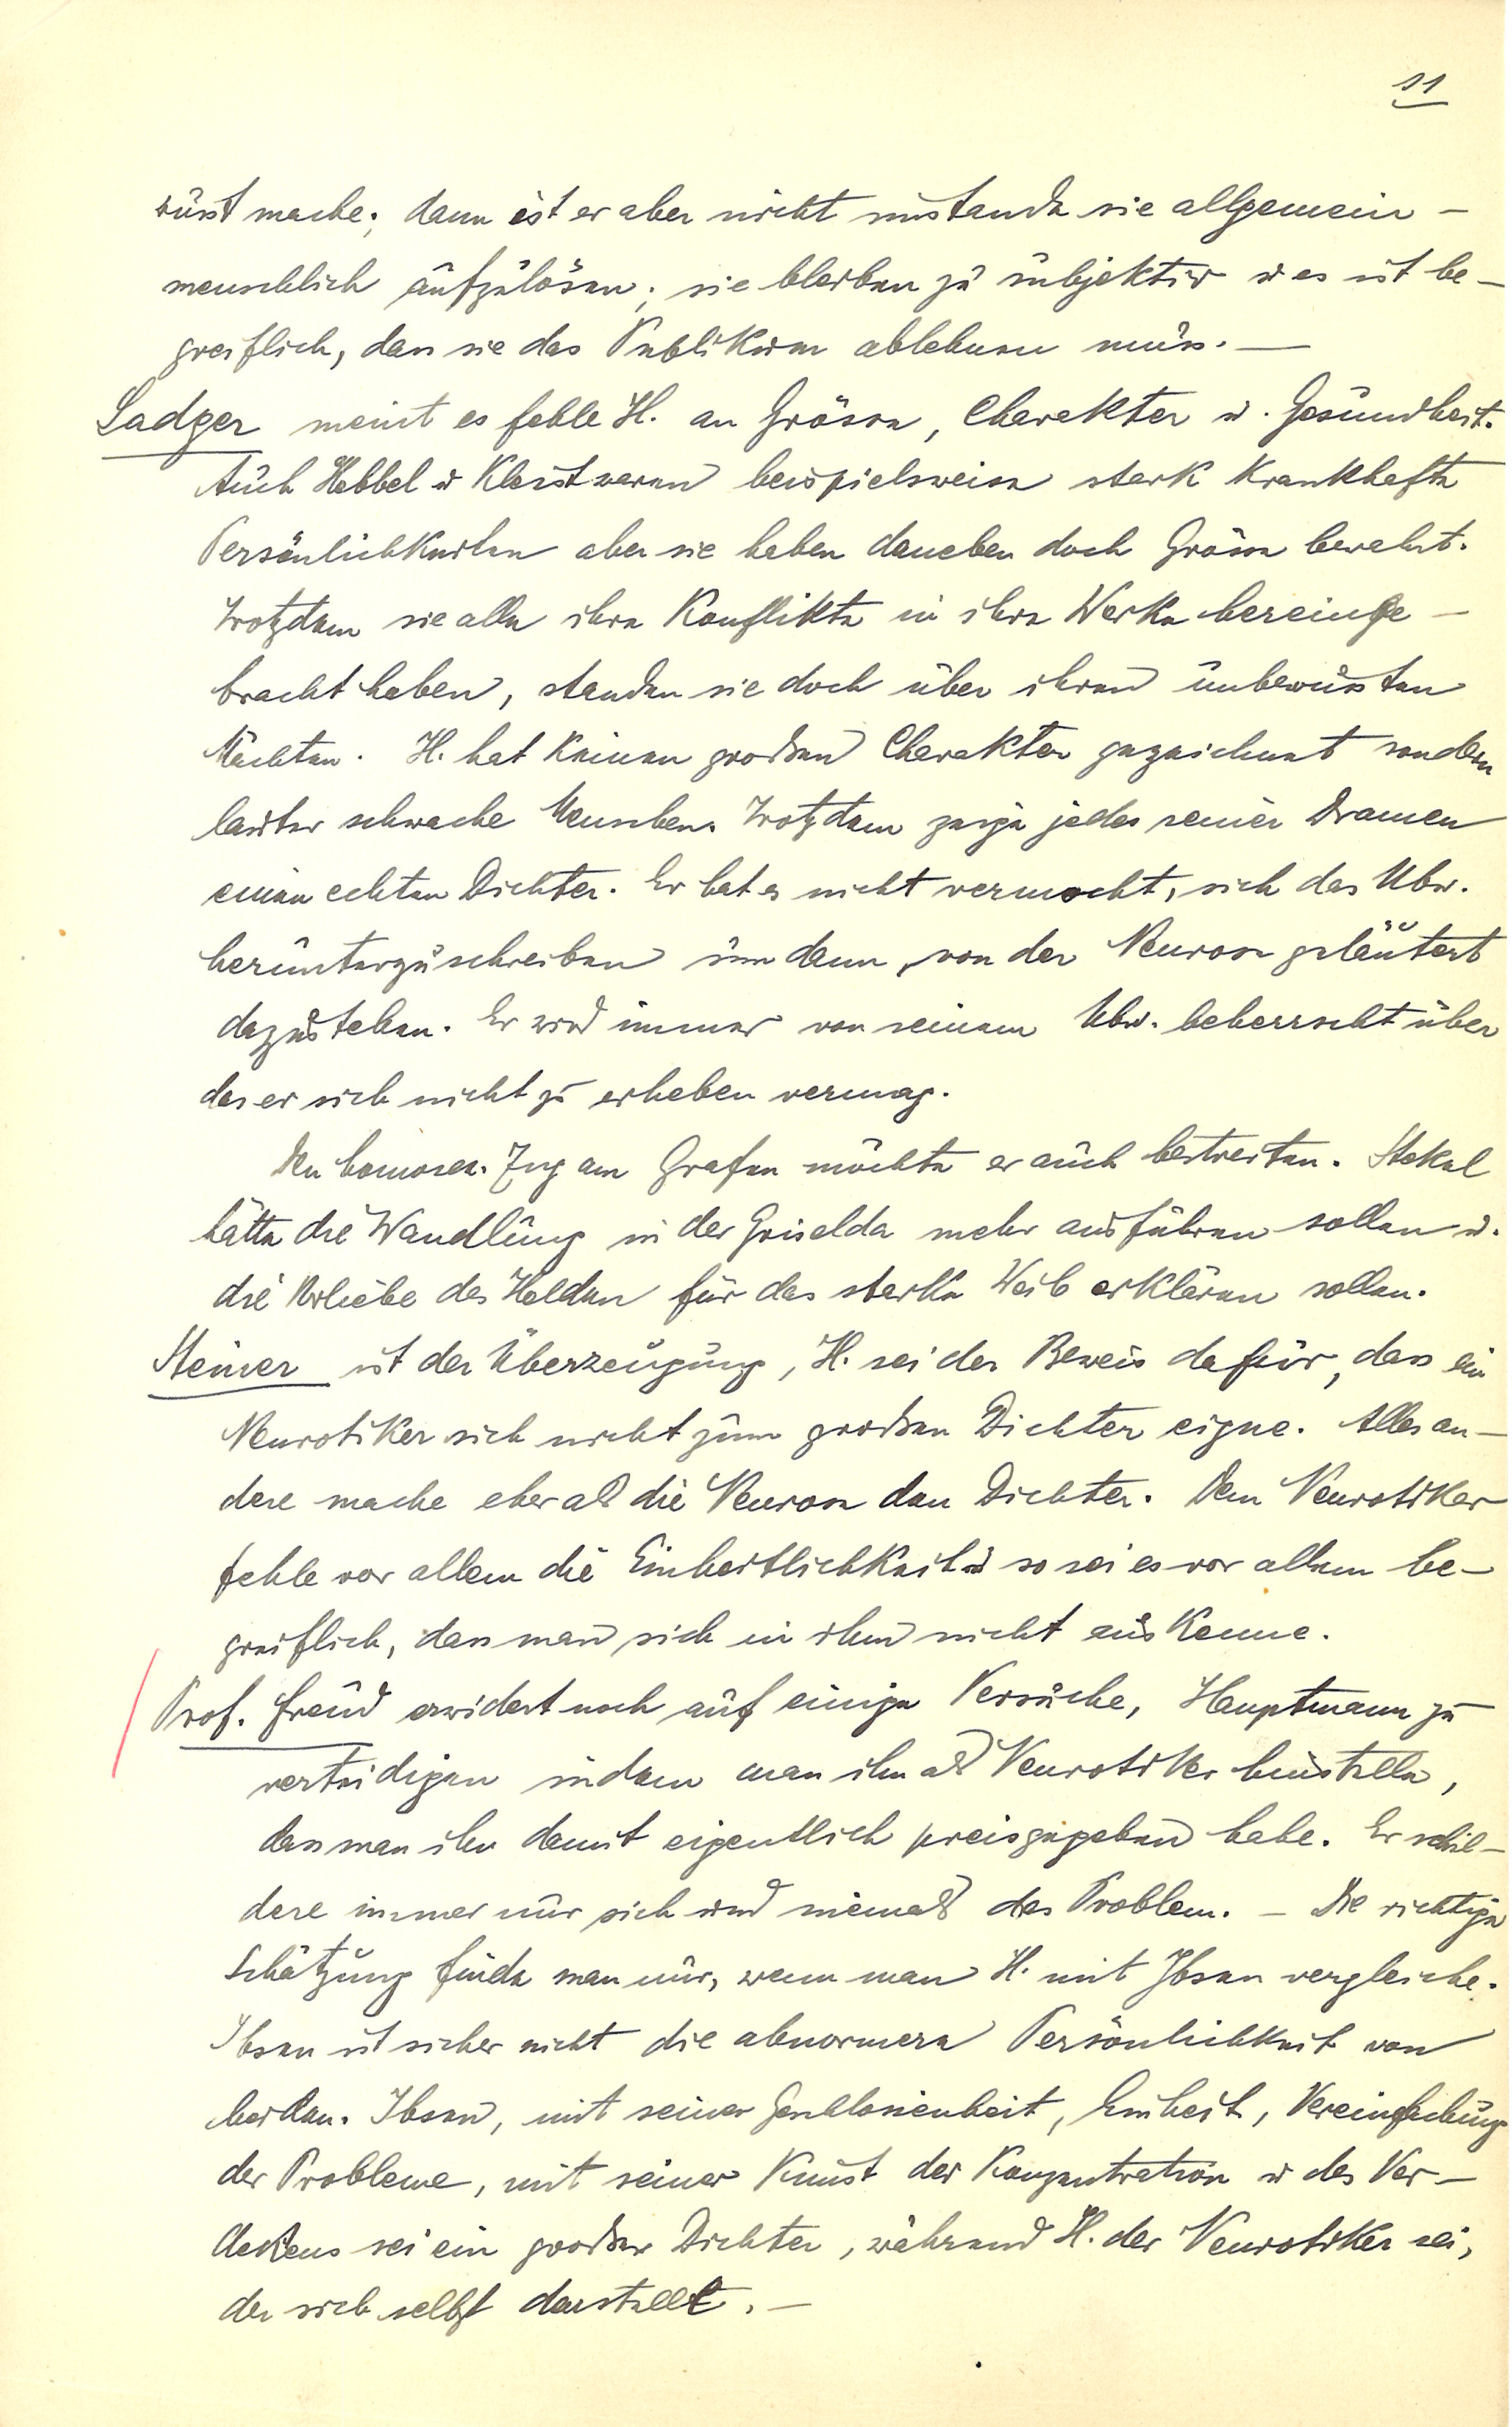 11
wusst mache; dann ist er aber nicht imstande sie allgemein-
menschlich aufzulösen; sie bleiben zu subjektiv u es ist be-
greiflich, dass sie das Publikum ablehnen muss. —
Sadger meint es fehle H. an Grösse, Charakter u. Gesundheit.
Auch Hebbel u Kleist waren beispielsweise stark krankhafte
Persönlichkeiten aber sie haben daneben doch Grösse bewahrt.
Trotzdem sie alle ihre Konflikte in ihre Werke hereinge-
bracht haben, standen sie doch über ihren unbewussten
Mächten. H. hat keinen großen Charakter gezeichnet sondern
lauter schwache Menschen. Trotzdem zeige jedes seiner Dramen
einen echten Dichter. Er hat es nicht vermocht, sich das Ubw.
herunterzuschreiben um dann, von der Neurose geläutert
dazustehen. Er wird immer von seinem Ubw. beherrscht über
das er sich nicht zu erheben vermag.
Den homosex. Zug am Grafen möchte er auch bestreiten. Stekel
hätte die Wandlung in der Griselda mehr ausführen sollen u.
die Vorliebe des Helden für das starke Weib erklären sollen.
Steiner ist der Überzeugung, H. sei der Beweis dafür, dass ein
Neurotiker sich nicht zum großen Dichter eigne. Alles an-
dere mache eher als die Neurose den Dichter. Dem Neurotiker
fehle vor allem die Einheitlichkeit u so sei es vor allem be-
greiflich, dass man sich in ihm nicht auskenne.
Prof. Freud erwidert noch auf einige Versuche, Hauptmann zu
verteidigen indem man ihn als Neurotiker hinstelle,
dass man ihn damit eigentlich preisgegeben habe. Er schil-
dere immer nur sich und niemals das Problem. — Die richtige
Schätzung finde man nur, wenn man H. mit Ibsen vergleiche.
Ibsen ist sicher nicht die abnormere Persönlichkeit von
beiden. Ibsen, mit seiner Geschlossenheit, Einheit, Vereinfachung
der Probleme, mit seiner Kunst der Konzentration u des Ver-
deckens sei ein großer Dichter, während H. der Neurotiker sei,
der sich selbst darstellt. —